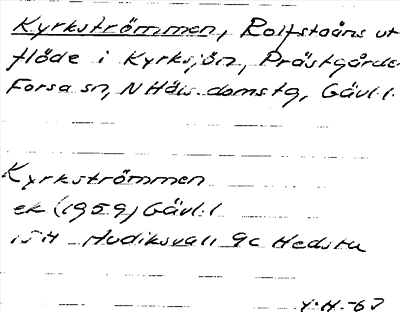 Kyrkströmmen, Rolfstaåns ut
flöde i Kyrksjön, Prästgårde
Forsa sn, N Häls. domstg, Gävl.l.
Kyrkströmmen
ek (1959) Gävl.l
15H Hudiksvall 9c Hedsta
Y.H.-63